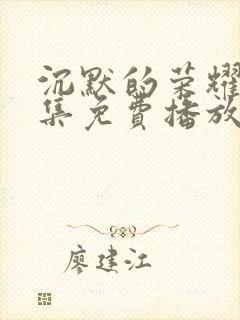 沉默的荣耀
集免费播放
廖建江